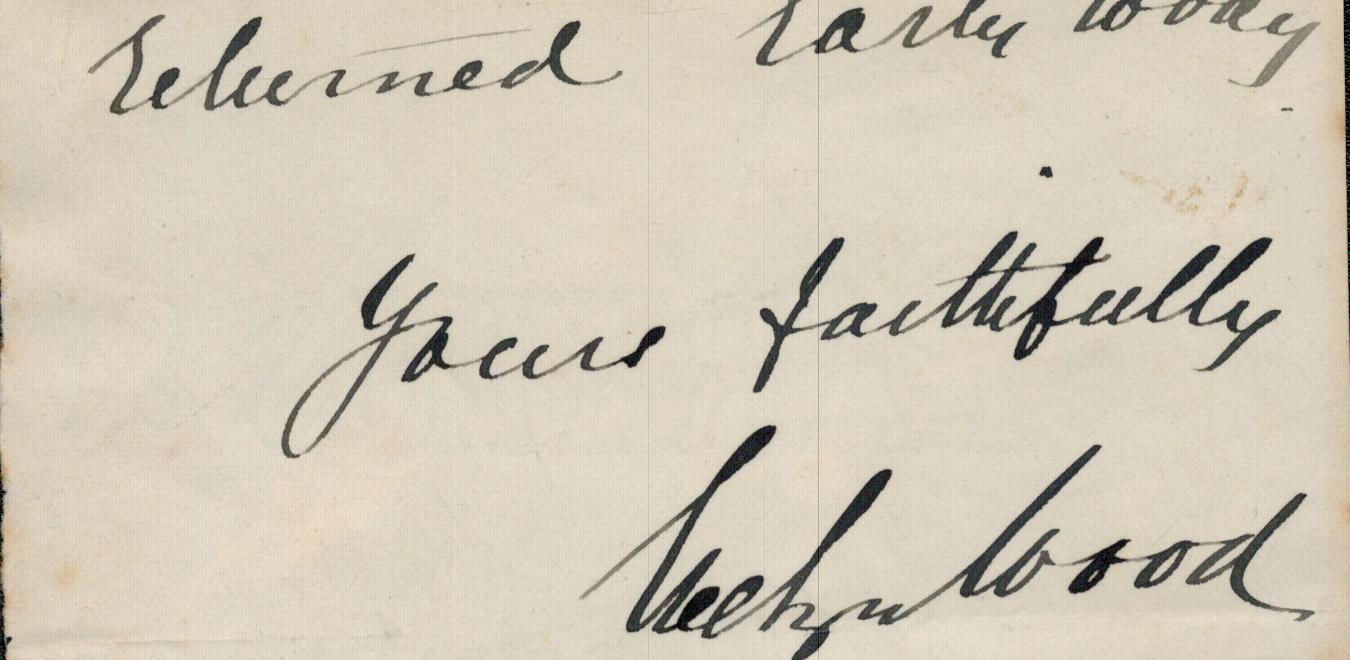 returned early today
Yours faithfully
Evelyn Wood